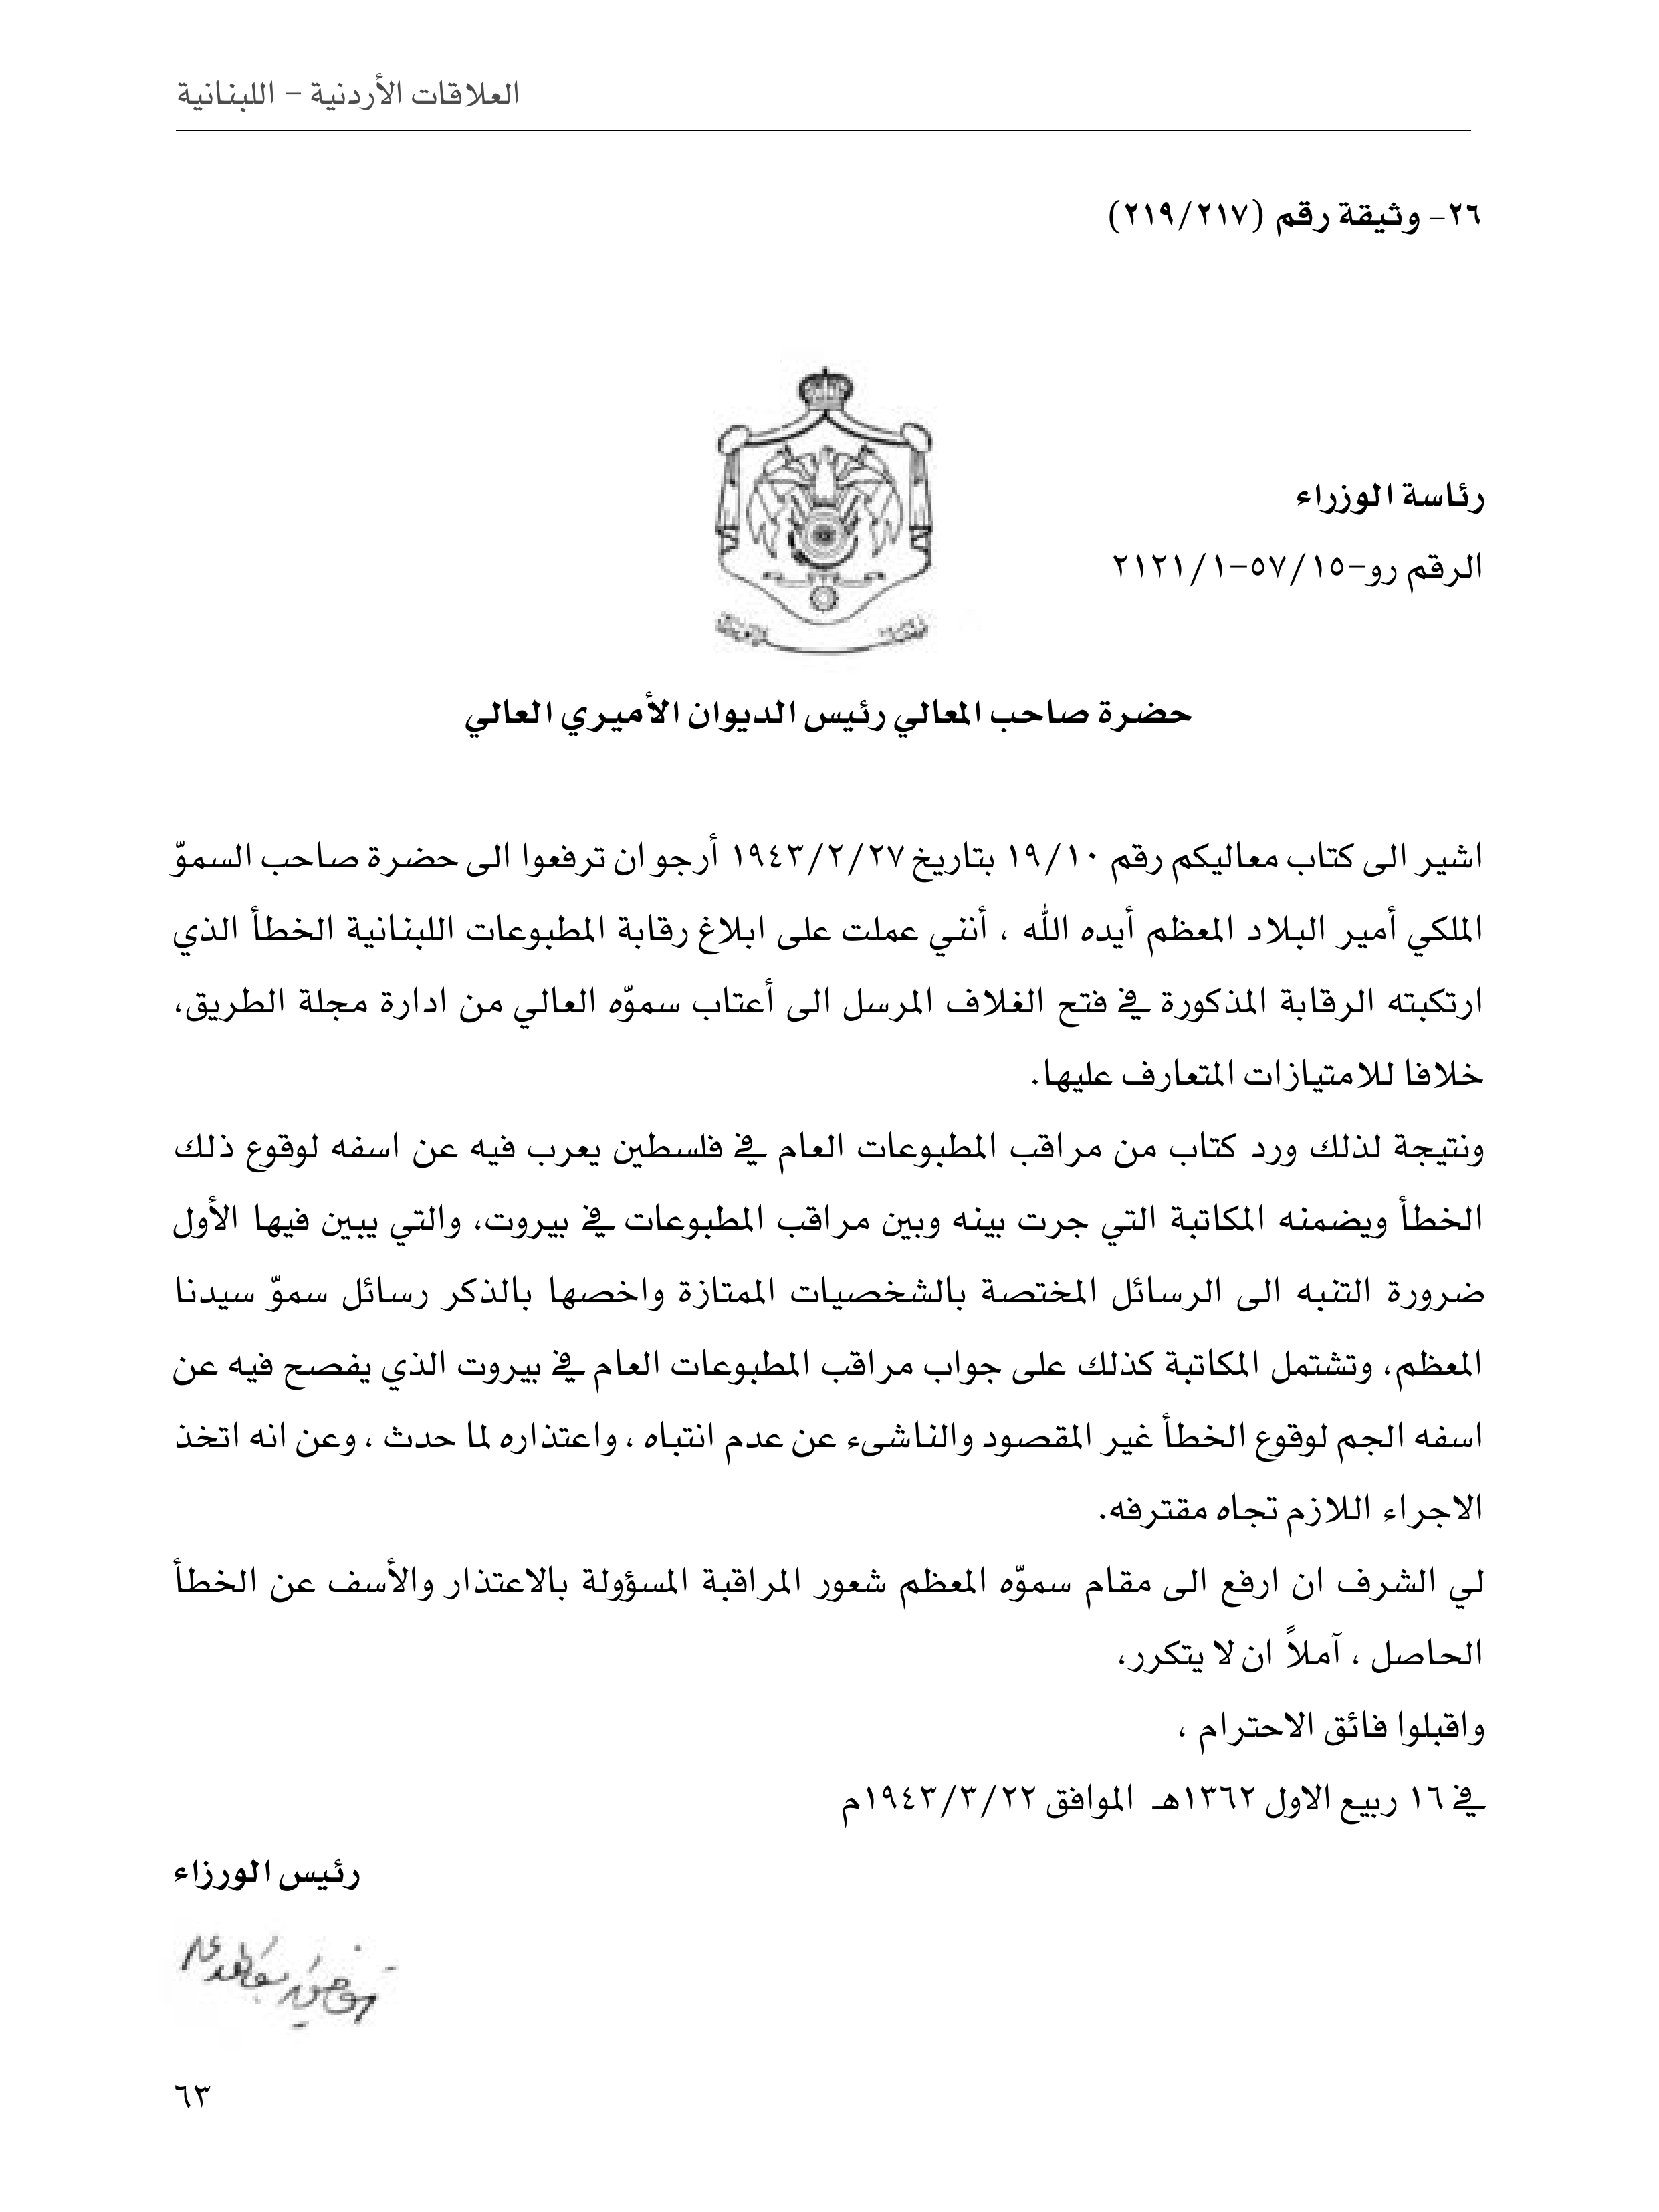 العلاقات الأردنية – اللبنانية
٢٦- وثيقة رقم (٢١٩/٢١٧)
رئاسة الوزراء
الرقم رو-٥٧/١٥-٢١٢١/١
حضرة صاحب المعالي رئيس الديوان الأميري العالي
اشير الى كتاب معاليكم رقم ١٩/١٠ بتاريخ ١٩٤٣/٢/٢٧ أرجو ان ترفعوا الى حضرة صاحب السموّ
الملكي أمير البلاد المعظم أيده الله ، أنني عملت على ابلاغ رقابة المطبوعات اللبنانية الخطأ الذي
ارتكبته الرقابة المذكورة في فتح الغلاف المرسل الى أعتاب سموّه العالي من ادارة مجلة الطريق،
خلافا للامتيازات المتعارف عليها.
ونتيجة لذلك ورد كتاب من مراقب المطبوعات العام في فلسطين يعرب فيه عن اسفه لوقوع ذلك
الخطأ ويضمنه المكاتبة التي جرت بينه وبين مراقب المطبوعات في بيروت، والتي يبين فيها الأول
ضرورة التنبه الى الرسائل المختصة بالشخصيات الممتازة واخصها بالذكر رسائل سموّ سيدنا
المعظم، وتشتمل المكاتبة كذلك على جواب مراقب المطبوعات العام في بيروت الذي يفصح فيه عن
اسفه الجم لوقوع الخطأ غير المقصود والناشىء عن عدم انتباه ، واعتذاره لما حدث ، وعن انه اتخذ
الاجراء اللازم تجاه مقترفه.
لي الشرف ان ارفع الى مقام سموّه المعظم شعور المراقبة المسؤولة بالاعتذار والأسف عن الخطأ
الحاصل ، آملاً ان لا يتكرر،
واقبلوا فائق الاحترام ،
في ١٦ ربيع الاول ١٣٦٢هـ الموافق ١٩٤٣/٣/٢٢م
رئيس الورزاء
٦٣